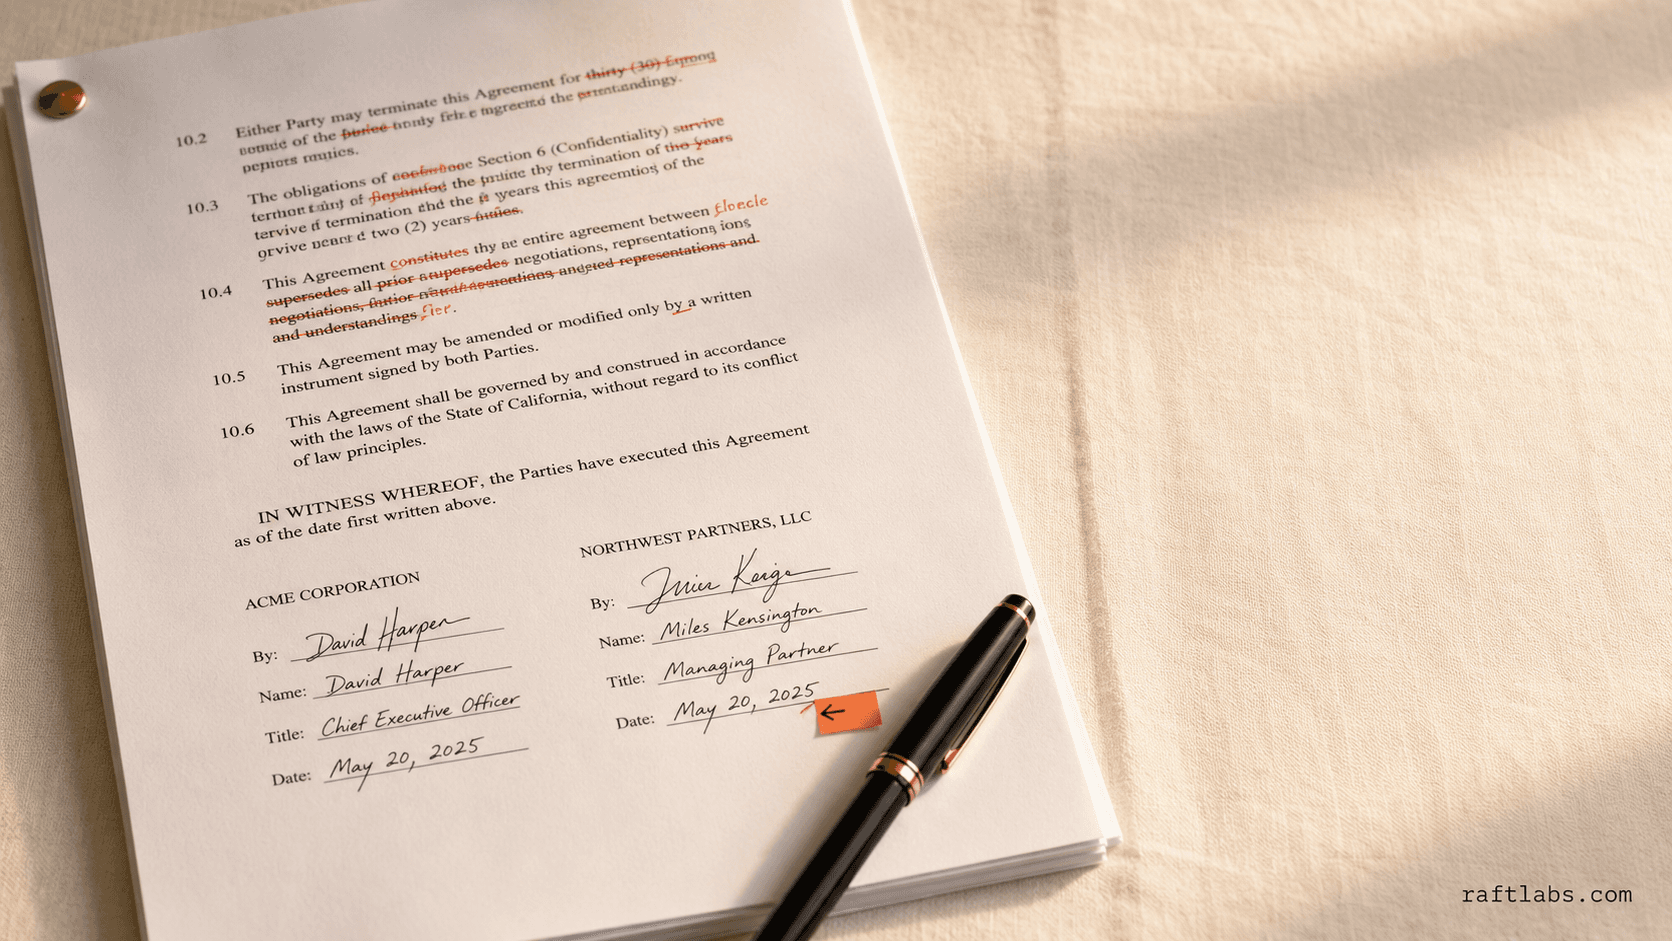 10.2 Either Party may terminate this Agreement for thirty (30)
of the the
10.3 The obligations of Section 6 (Confidentiality) survive
of the thy termination of the years
of termination the years this of the
two (2) years
10.4 This Agreement constitutes thy entire agreement between
supersedes all prior negotiations,
negotiations, representations and
and understandings
10.5 This Agreement may be amended or modified only by a written
instrument signed by both Parties.
10.6 This Agreement shall be governed by and construed in accordance
with the laws of the State of California, without regard to its conflict
of law principles.
IN WITNESS WHEREOF, the Parties have executed this Agreement
as of the date first written above.
ACME CORPORATION
By: David Harper
Name: David Harper
Title: Chief Executive Officer
Date: May 20, 2025
NORTHWEST PARTNERS, LLC
By:
Name: Miles Kensington
Title: Managing Partner
Date: May 20, 2025
←
raftlabs.com